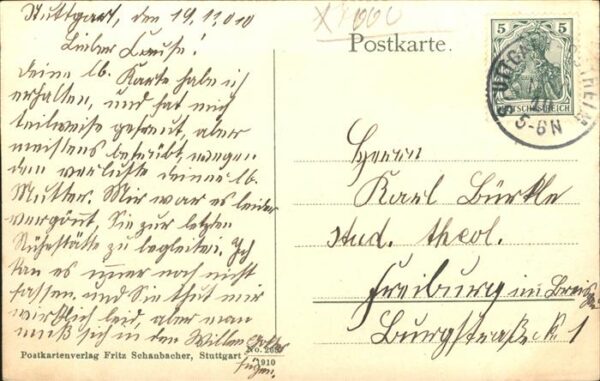 Stuttgart, den 19.11.010
Lieber Cousé!
Deine lb. Karte habe ich
erhalten, und hat mich
teilweise gefreut, aber
meistens betrübt, wegen
dem verluste deiner lb.
Mutter. Mir war es leider
vergönnt, Sie zur letzten
Ruhestätte zu begleiten. Ich
kan es imer noch nicht
fassen. und Sie thut mir
wirklich leid, aber man
muß sich in den Willen Gottes
fügen.
Postkartenverlag Fritz Schanbacher, Stuttgart
No. 269
1910
Postkarte.
5 5
DEUTSCHES REICH
STUTTGART
5-6N
Herrn
Karl Bürkle
stud. theol.
Freiburg im Breisgau
Burgstraße 1